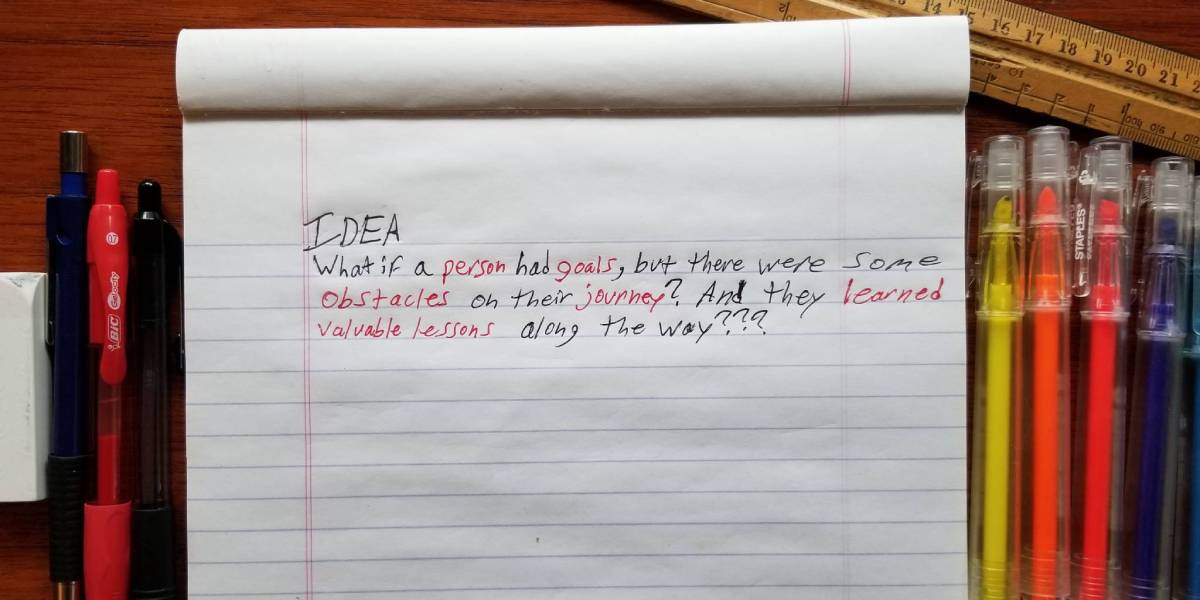 IDEA
What if a person had goals, but there were some
obstacles on their journey? And they learned
valuable lessons along the way???
BIC
STAPLES
14 15 16 17 18 19 20 21